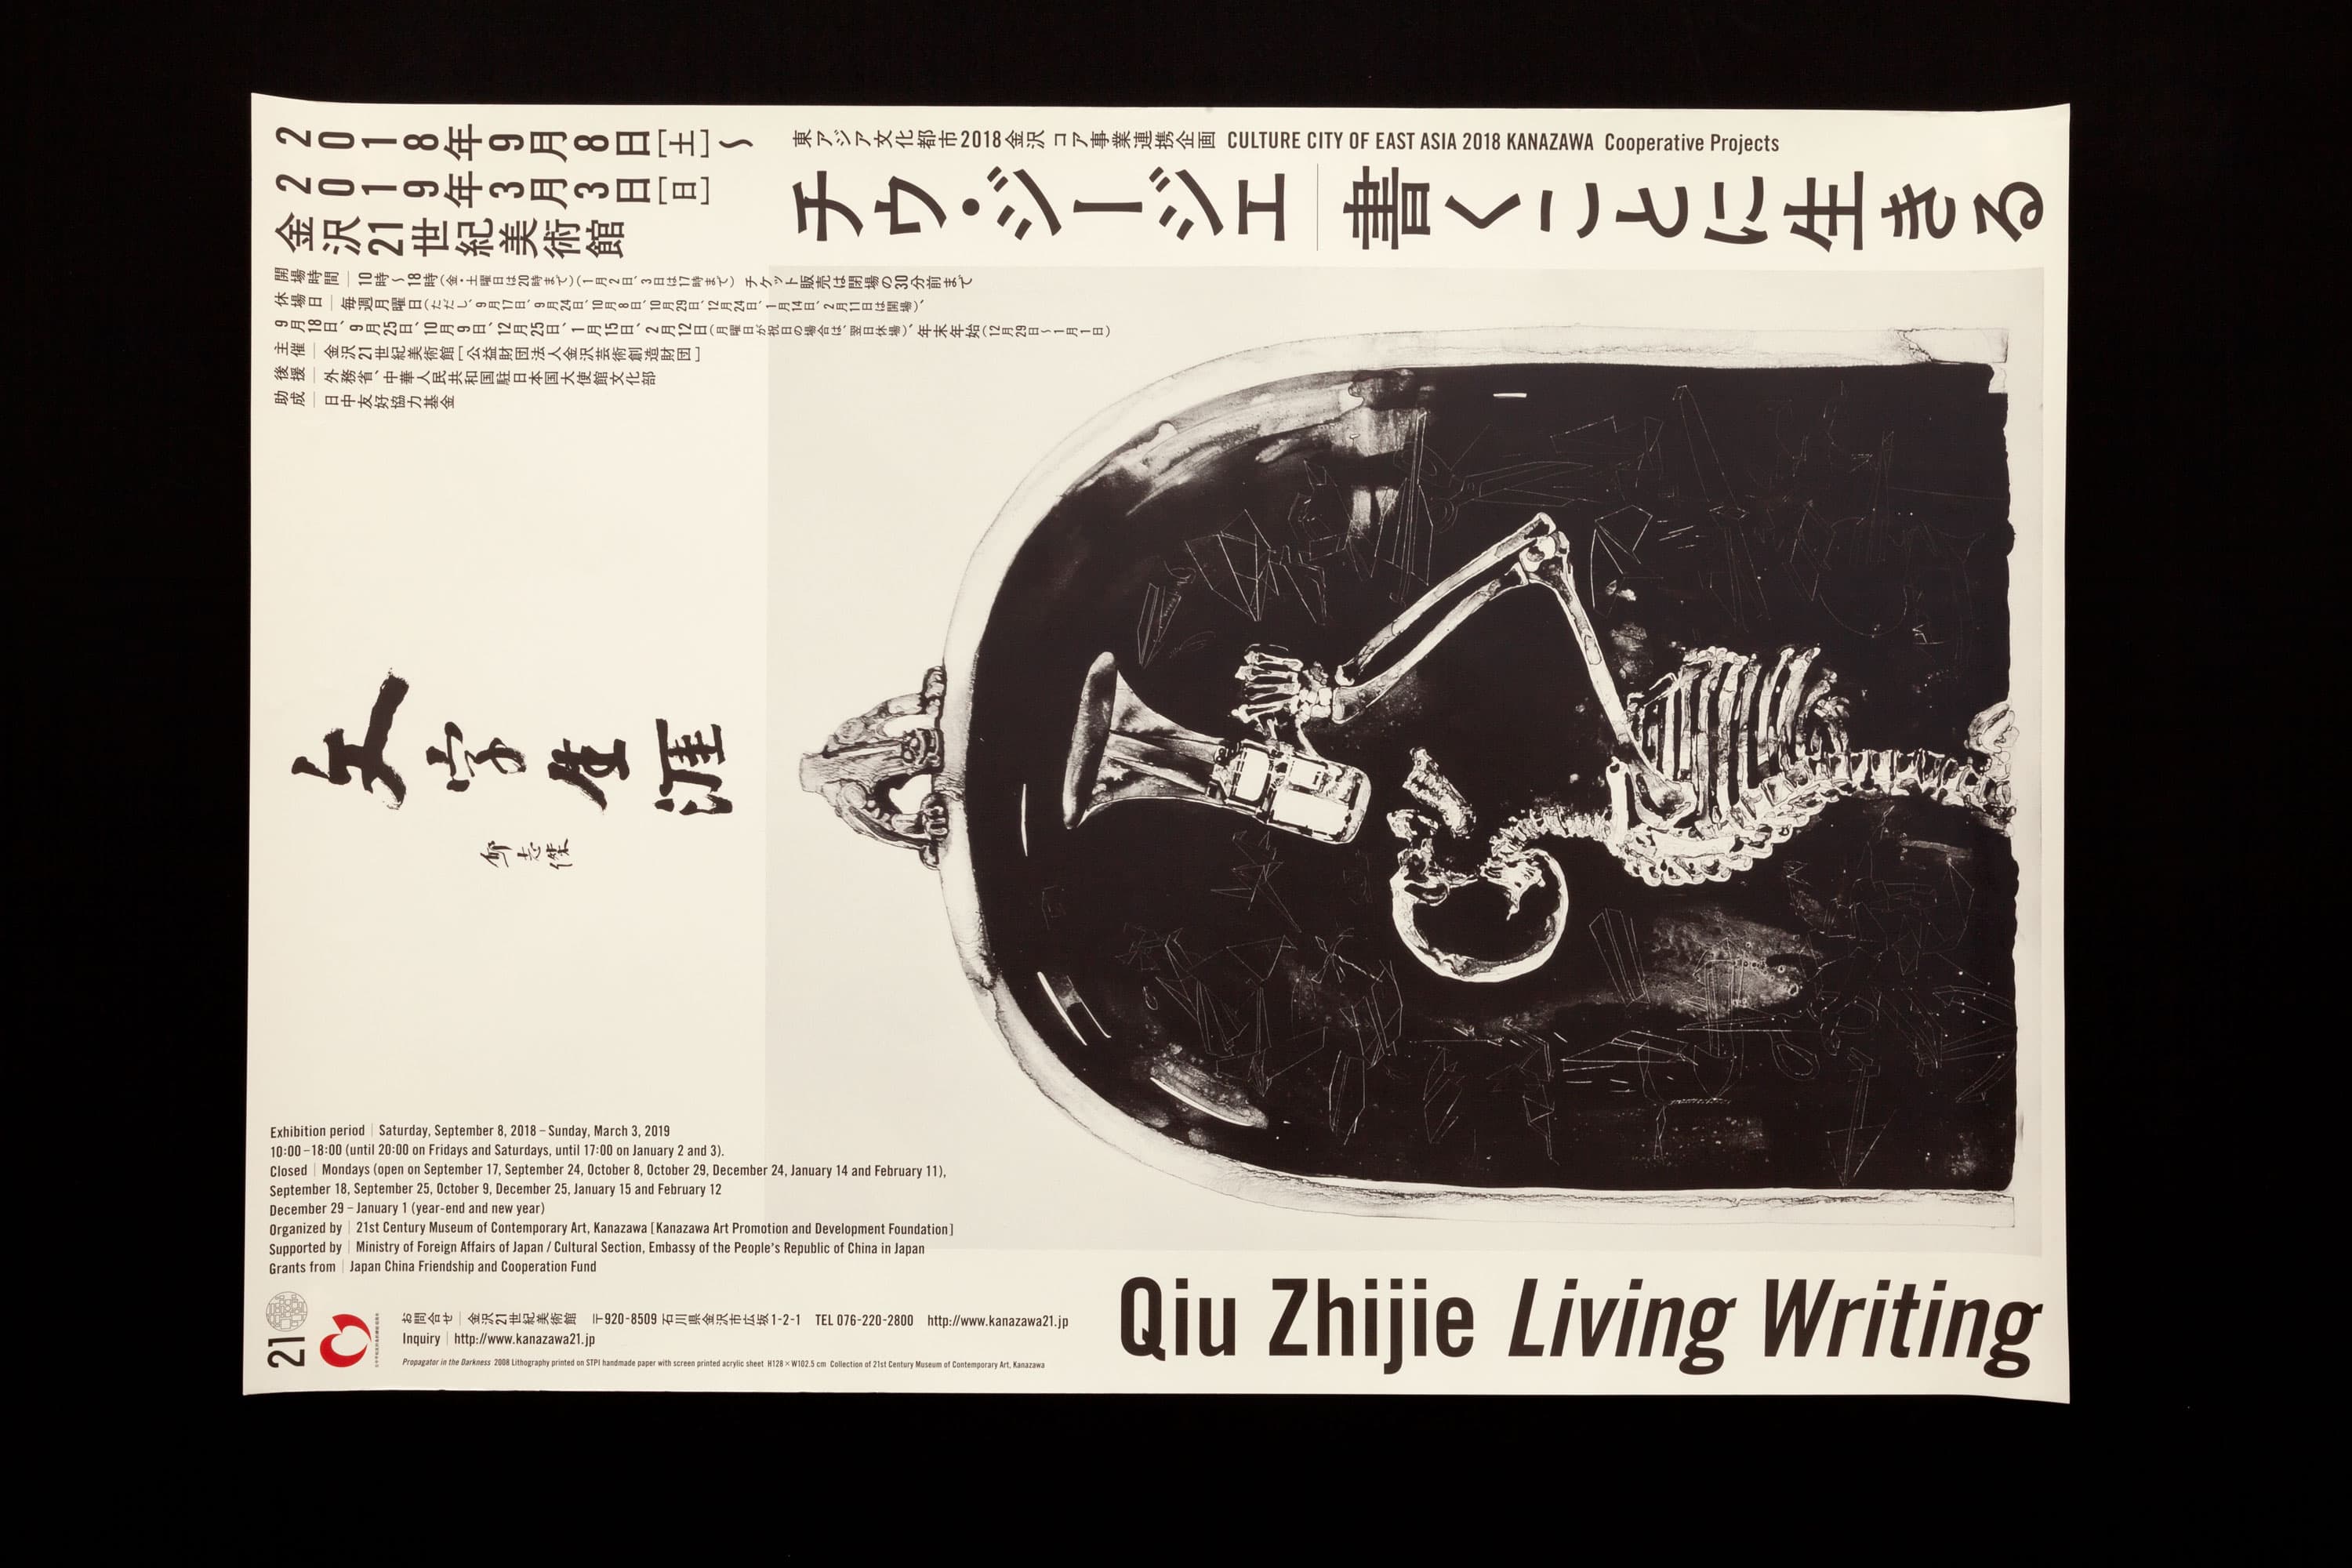 2018年9月8日[土]〜
2019年3月3日[日]
金沢21世紀美術館
東アジア文化都市2018金沢 コア事業連携企画 CULTURE CITY OF EAST ASIA 2018 KANAZAWA Cooperative Projects
チウ・ジージエ|書くことに生きる
開場時間|10時〜18時(金・土曜日は20時まで)(1月2日、3日は17時まで) チケット販売は閉場の30分前まで
休場日|毎週月曜日(ただし、9月17日、9月24日、10月8日、10月29日、12月24日、1月14日、2月11日は開場)、
9月18日、9月25日、10月9日、12月25日、1月15日、2月12日(月曜日が祝日の場合は、翌日休場)、年末年始(12月29日〜1月1日)
主催|金沢21世紀美術館[公益財団法人金沢芸術創造財団]
後援|外務省、中華人民共和国駐日本国大使館文化部
助成|日中友好協力基金
文字生涯
邱志傑
Exhibition period | Saturday, September 8, 2018 – Sunday, March 3, 2019
10:00–18:00 (until 20:00 on Fridays and Saturdays, until 17:00 on January 2 and 3).
Closed | Mondays (open on September 17, September 24, October 8, October 29, December 24, January 14 and February 11),
September 18, September 25, October 9, December 25, January 15 and February 12
December 29 – January 1 (year-end and new year)
Organized by | 21st Century Museum of Contemporary Art, Kanazawa [Kanazawa Art Promotion and Development Foundation]
Supported by | Ministry of Foreign Affairs of Japan / Cultural Section, Embassy of the People's Republic of China in Japan
Grants from | Japan China Friendship and Cooperation Fund
21
お問合せ|金沢21世紀美術館 〒920-8509 石川県金沢市広坂1-2-1 TEL 076-220-2800 http://www.kanazawa21.jp
Inquiry | http://www.kanazawa21.jp
Propagator in the Darkness 2008 Lithography printed on STPI handmade paper with screen printed acrylic sheet H128×W102.5 cm Collection of 21st Century Museum of Contemporary Art, Kanazawa
Qiu Zhijie Living Writing